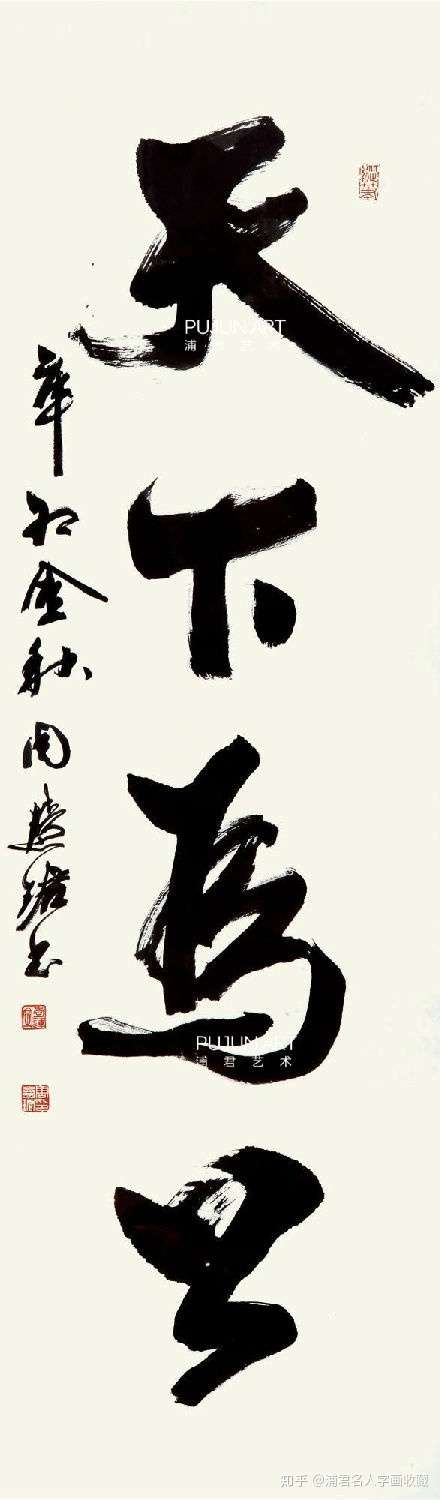 天下為公
辛卯金秋周慧珺书
PUJUN ART
浦君艺术
PUJUN ART
浦君艺术
知乎 @浦君名人字画收藏